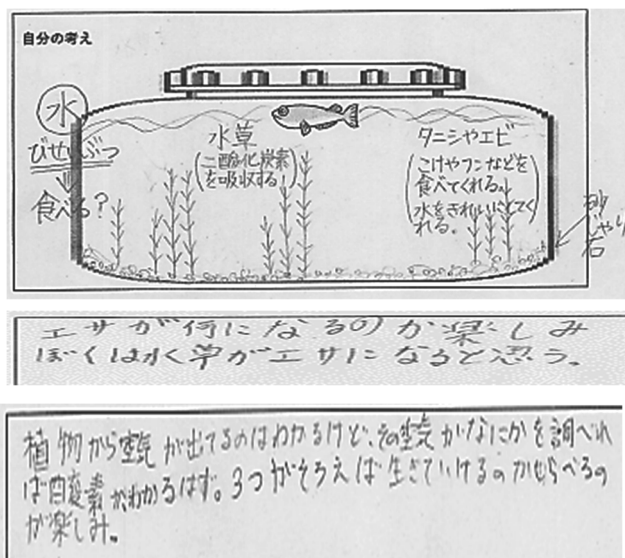 自分の考え
水
びせいぶつ
食べる?
水草
(二酸化炭素
を吸収する)
タニシやエビ
(こけやフンなどを
食べてくれる。
水をきれいにしてく
れる。)
砂
じゃり
石
エサが何になるのか楽しみ
ぼくは水草がエサになると思う。
植物から空気が出てるのはわかるけど、その空気がなにかを調べれ
ば酸素がわかるはず。3つがそろえば生きていけるのかしらべるの
が楽しみ。